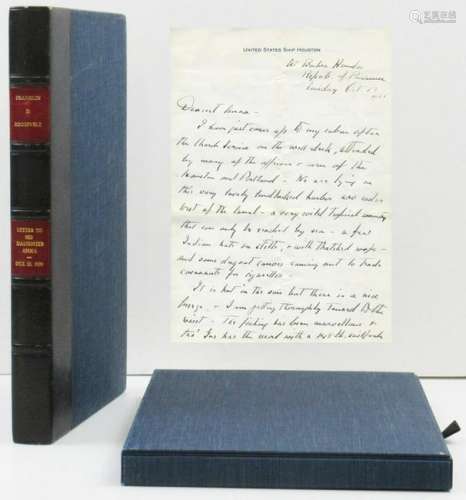 FRANKLIN
D.
ROOSEVELT
LETTER TO
HIS
DAUGHTER
ANNA
OCT. 13,
UNITED STATES SHIP HOUSTON
At Bahia Honda
Republic of Panama
Sunday Oct 13
Dearest Anna -
I have just come up to my cabin after
the Church Service on the well deck, attended
by many of the officers & men of the
Houston and Portland - We are lying in
this very lovely landlocked harbor
west of the Canal - a very wild tropical country
that can only be reached by sea - a few
Indian huts on stilts, & with thatched roofs -
and some dugout canoes coming out to trade
cocoanuts for cigarettes -
It is hot in the sun but there is a nice
breeze & I am getting thoroughly tanned to the
waist - The fishing has been marvellous &
tho' has the record with a lb.